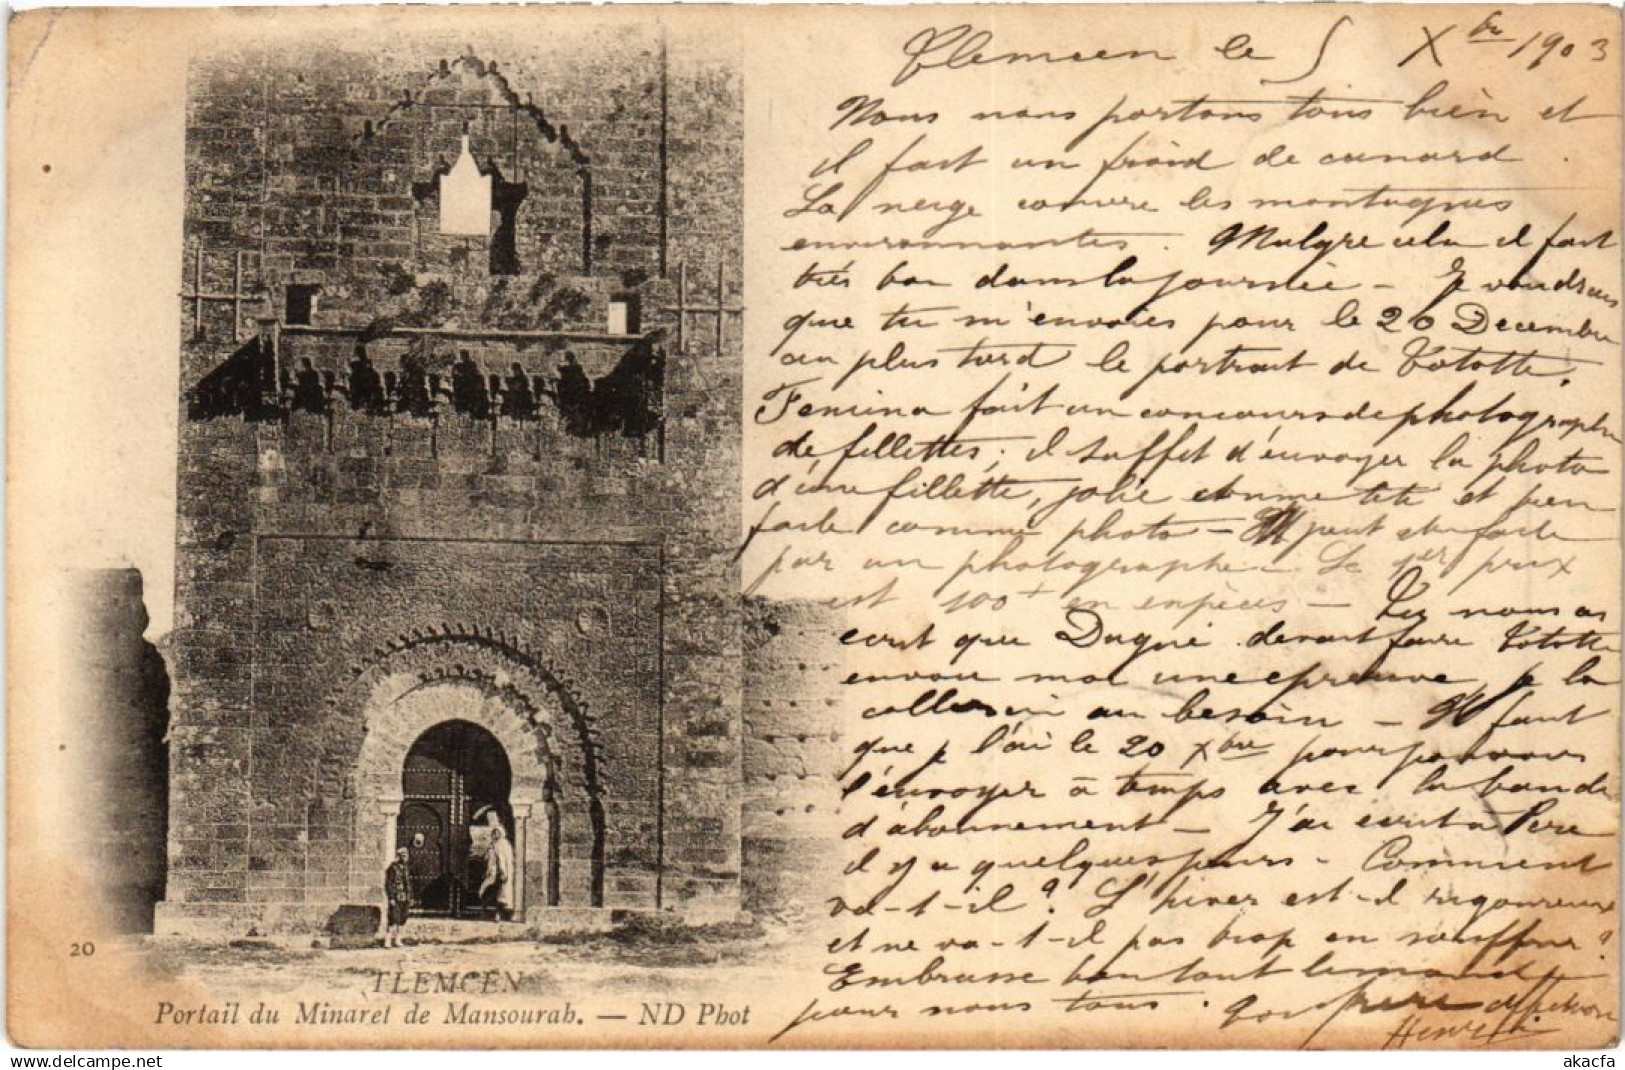 Tlemcen le 5 Xbre 1903
Nous nous portons tous bien et
il fait un froid de canard.
La neige couvre les montagnes
environnantes. Malgré cela il fait
très bon dans la journée — Je voudrais
que tu m'envoies pour le 20 Decembre
au plus tard le portrait de Tototte.
Femina fait un concours de photographie
de fillettes; il suffit d'envoyer la photo
d'une fillette, jolie comme tete et bien
faite comme photo — Il peut etre faite
par un photographe. Le 1er prix
est 100+ en espèces —
ecrit que Dugué devait faire Tototte
envoie moi une epreuve je la
collerai au besoin — Il faut
que je l'ai le 20 Xbre pour pouvoir
l'envoyer à temps avec la bande
d'abonnement — J'ai ecrit a Pere
il y a quelques jours — Comment
va-t-il? L'hiver est-il rigoureux
et ne va-t-il pas trop en souffrir?
Embrasse bien tout le monde
pour nous tous. Ton frere
Henri
20
TLEMCEN
Portail du Minaret de Mansourah. — ND Phot
akacfa